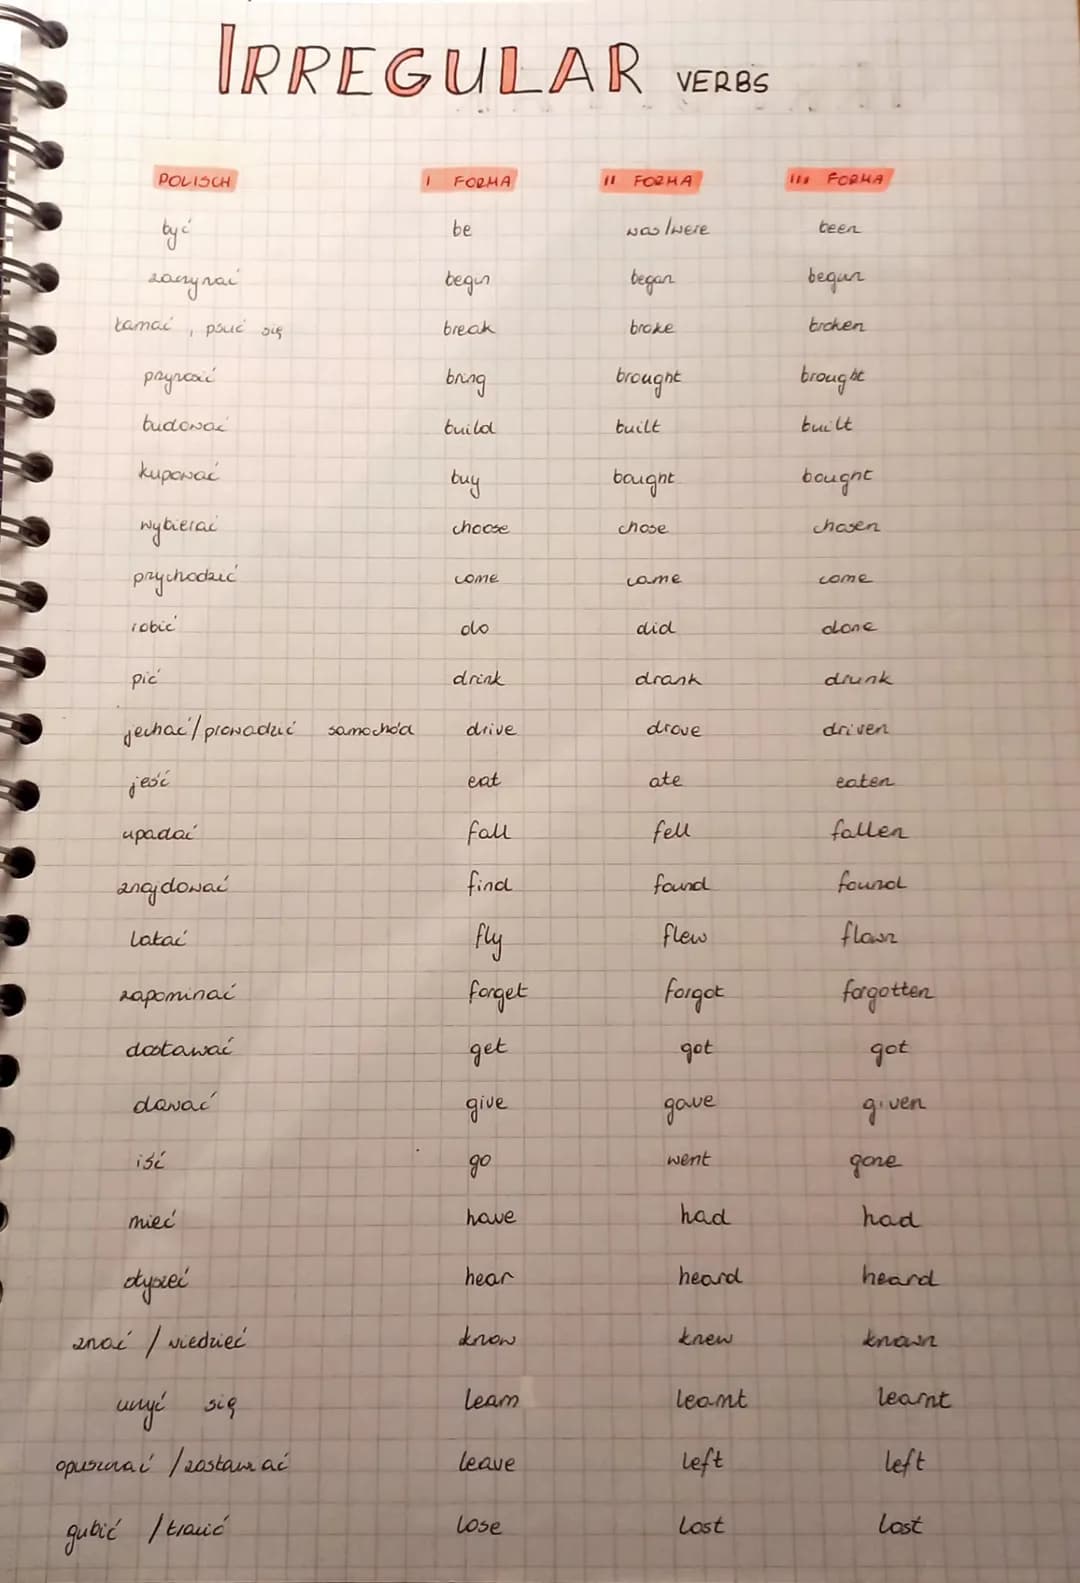 IRREGULAR VERBS
POLISCH I FORMA II FORMA III FORMA
być be was/were been
zaczynać begin began begun
łamać, psuć się break broke broken
przynosić bring brought brought
budować build built built
kupować buy bought bought
wybierać choose chose chosen
przychodzić come came come
robić do did done
pić drink drank drunk
jechać/prowadzić samochód drive drove driven
jeść eat ate eaten
upadać fall fell fallen
znajdować find found found
latać fly flew flown
zapominać forget forgot forgotten
dostawać get got got
dawać give gave given
iść go went gone
mieć have had had
słyszeć hear heard heard
znać / wiedzieć know knew known
uczyć się learn learnt learnt
opuszczać / zostawiać leave left left
gubić / tracić lose lost lost